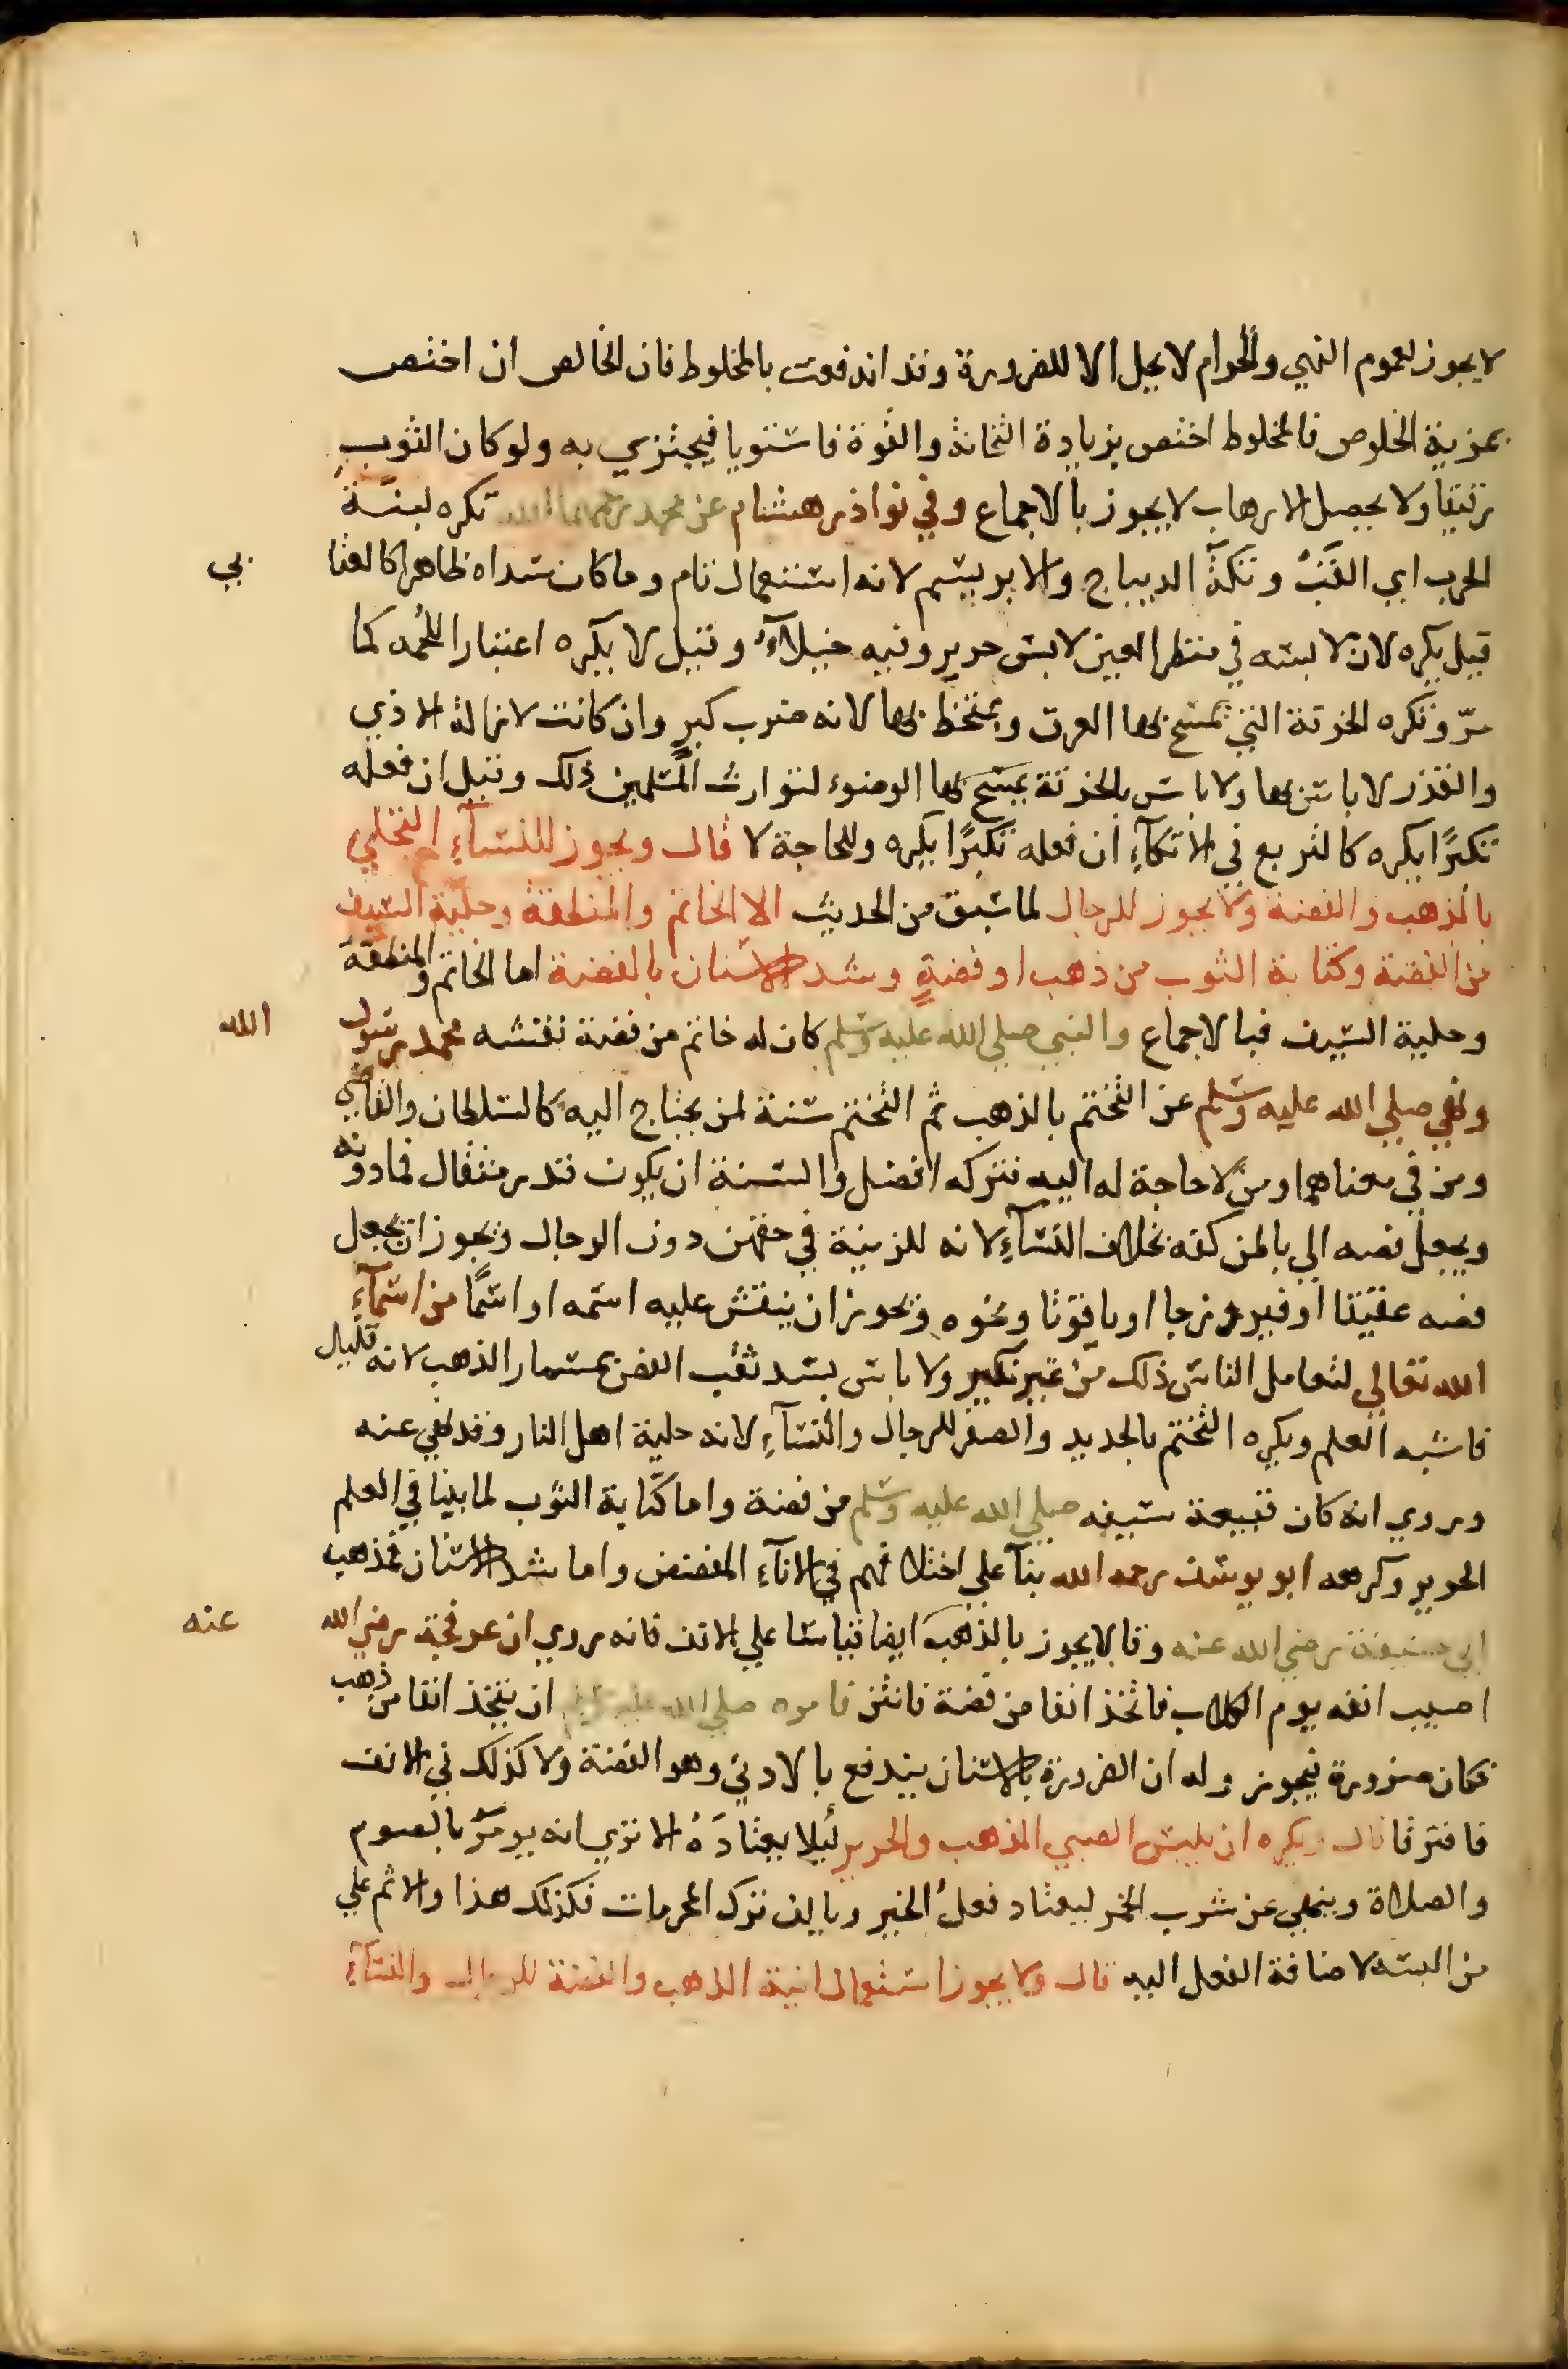 لا يجوز لعموم النهي والحرام لا يحل الا للضرورة وقد اندفعت بالمخلوط فان الخالص ان اختص
بمزية الخلوص فالمخلوط اختص بزيادة الثخانة والقوة فاستويا فيجتزي به ولو كان الثوب
رقيقا ولا يحصل الارهاب لا يجوز بالاجماع وفي نوادر هشام عن محمد رحمهما الله تكره لبنة
الحرب اي القب وتكة الديباج والابريسم لانه استعمال تام وما كان سداه ظاهرا كالعتا بي
قيل يكره لان لابسه في منظر العين لابس حرير وفيه خيلآء وقيل لا يكره اعتبارا للحمه كما
مرّ وتكره الخرقة التي يمسح بها العرق ويمتخط بها لانه ضرب كبر وان كانت لازالة الاذي
والقذر لا باس بها ولا باس بالخرقة يمسح بها الوضوء لتوارث المسلمين ذلك وقيل ان فعله
تكبرًا يكره كالتربع في الاتكآءِ ان فعله تكبرًا يكره وللحاجة لا قال ويجوز للنسآءِ التحلي
بالذهب والفضة ولا يجوز للرجال لما سبق من الحديث الا الخاتم والمنطقة وحلية السيف
من الفضة وكتابة الثوب من ذهب او فضةٍ وشد الاسنان بالفضة اما الخاتم والمنطقة
وحلية السيف فبالاجماع والنبي صلي الله عليه وسلم كان له خاتم من فضة نقشه محمد رسول الله
ونهي صلي الله عليه وسلم عن التختم بالذهب ثم التختم سنة لمن يحتاج اليه كالسلطان والقاضي
ومن في معناهما ومن لا حاجة له اليه فتركه افضل والسنة ان يكون قدر مثقال فما دونه
ويجعل فصه الي باطن كفه بخلاف النسآءِ لانه للزينة في حقهن دون الرجال ويجوز ان يجعل
فصه عقيقا او فيروزجا او ياقوتا ونحوه ويجوز ان ينقش عليه اسمه او اسمًا من اسمآءِ
الله تعالي لتعامل الناس ذلك من غير نكير ولا باس بسد ثقب الفص بمسمار الذهب لانه قليل
فاشبه العلم ويكره التختم بالحديد والصفر للرجال والنسآءِ لانه حلية اهل النار وقد نهي عنه
وروي انه كان قبيعة سيفه صلي الله عليه وسلم من فضة واما كتابة الثوب لما بينا في العلم
الحرير وكرهه ابو يوسف رحمه الله بنآ علي اختلافهم في الانآءِ المفضض واما شد الاسنان فمذهب
ابي حنيفة رضي الله عنه وقالا يجوز بالذهب ايضا قياسا علي الانف فانه روي ان عرفجة رضي الله عنه
اصيب انفه يوم الكلاب فاتخذ انفا من فضة فانتن فامره صلي الله عليه وسلم ان يتخذ انفا من ذهب
فكان ضرورة فيجوز وله ان الضرورة بالاسنان يندفع بالادني وهو الفضة ولا كذلك في الانف
فافترقا قال ويكره ان يلبس الصبي الذهب والحرير ليلا يعتادَهُ الا تري انه يومر بالصوم
والصلاة وينهي عن شرب الخمر ليعتاد فعل الخير ويالف ترك المحرمات فكذلك هذا والاثم علي
من البسه لاضافة الفعل اليه قال ولا يجوز استعمال انية الذهب والفضة للرجال والنسآءِ